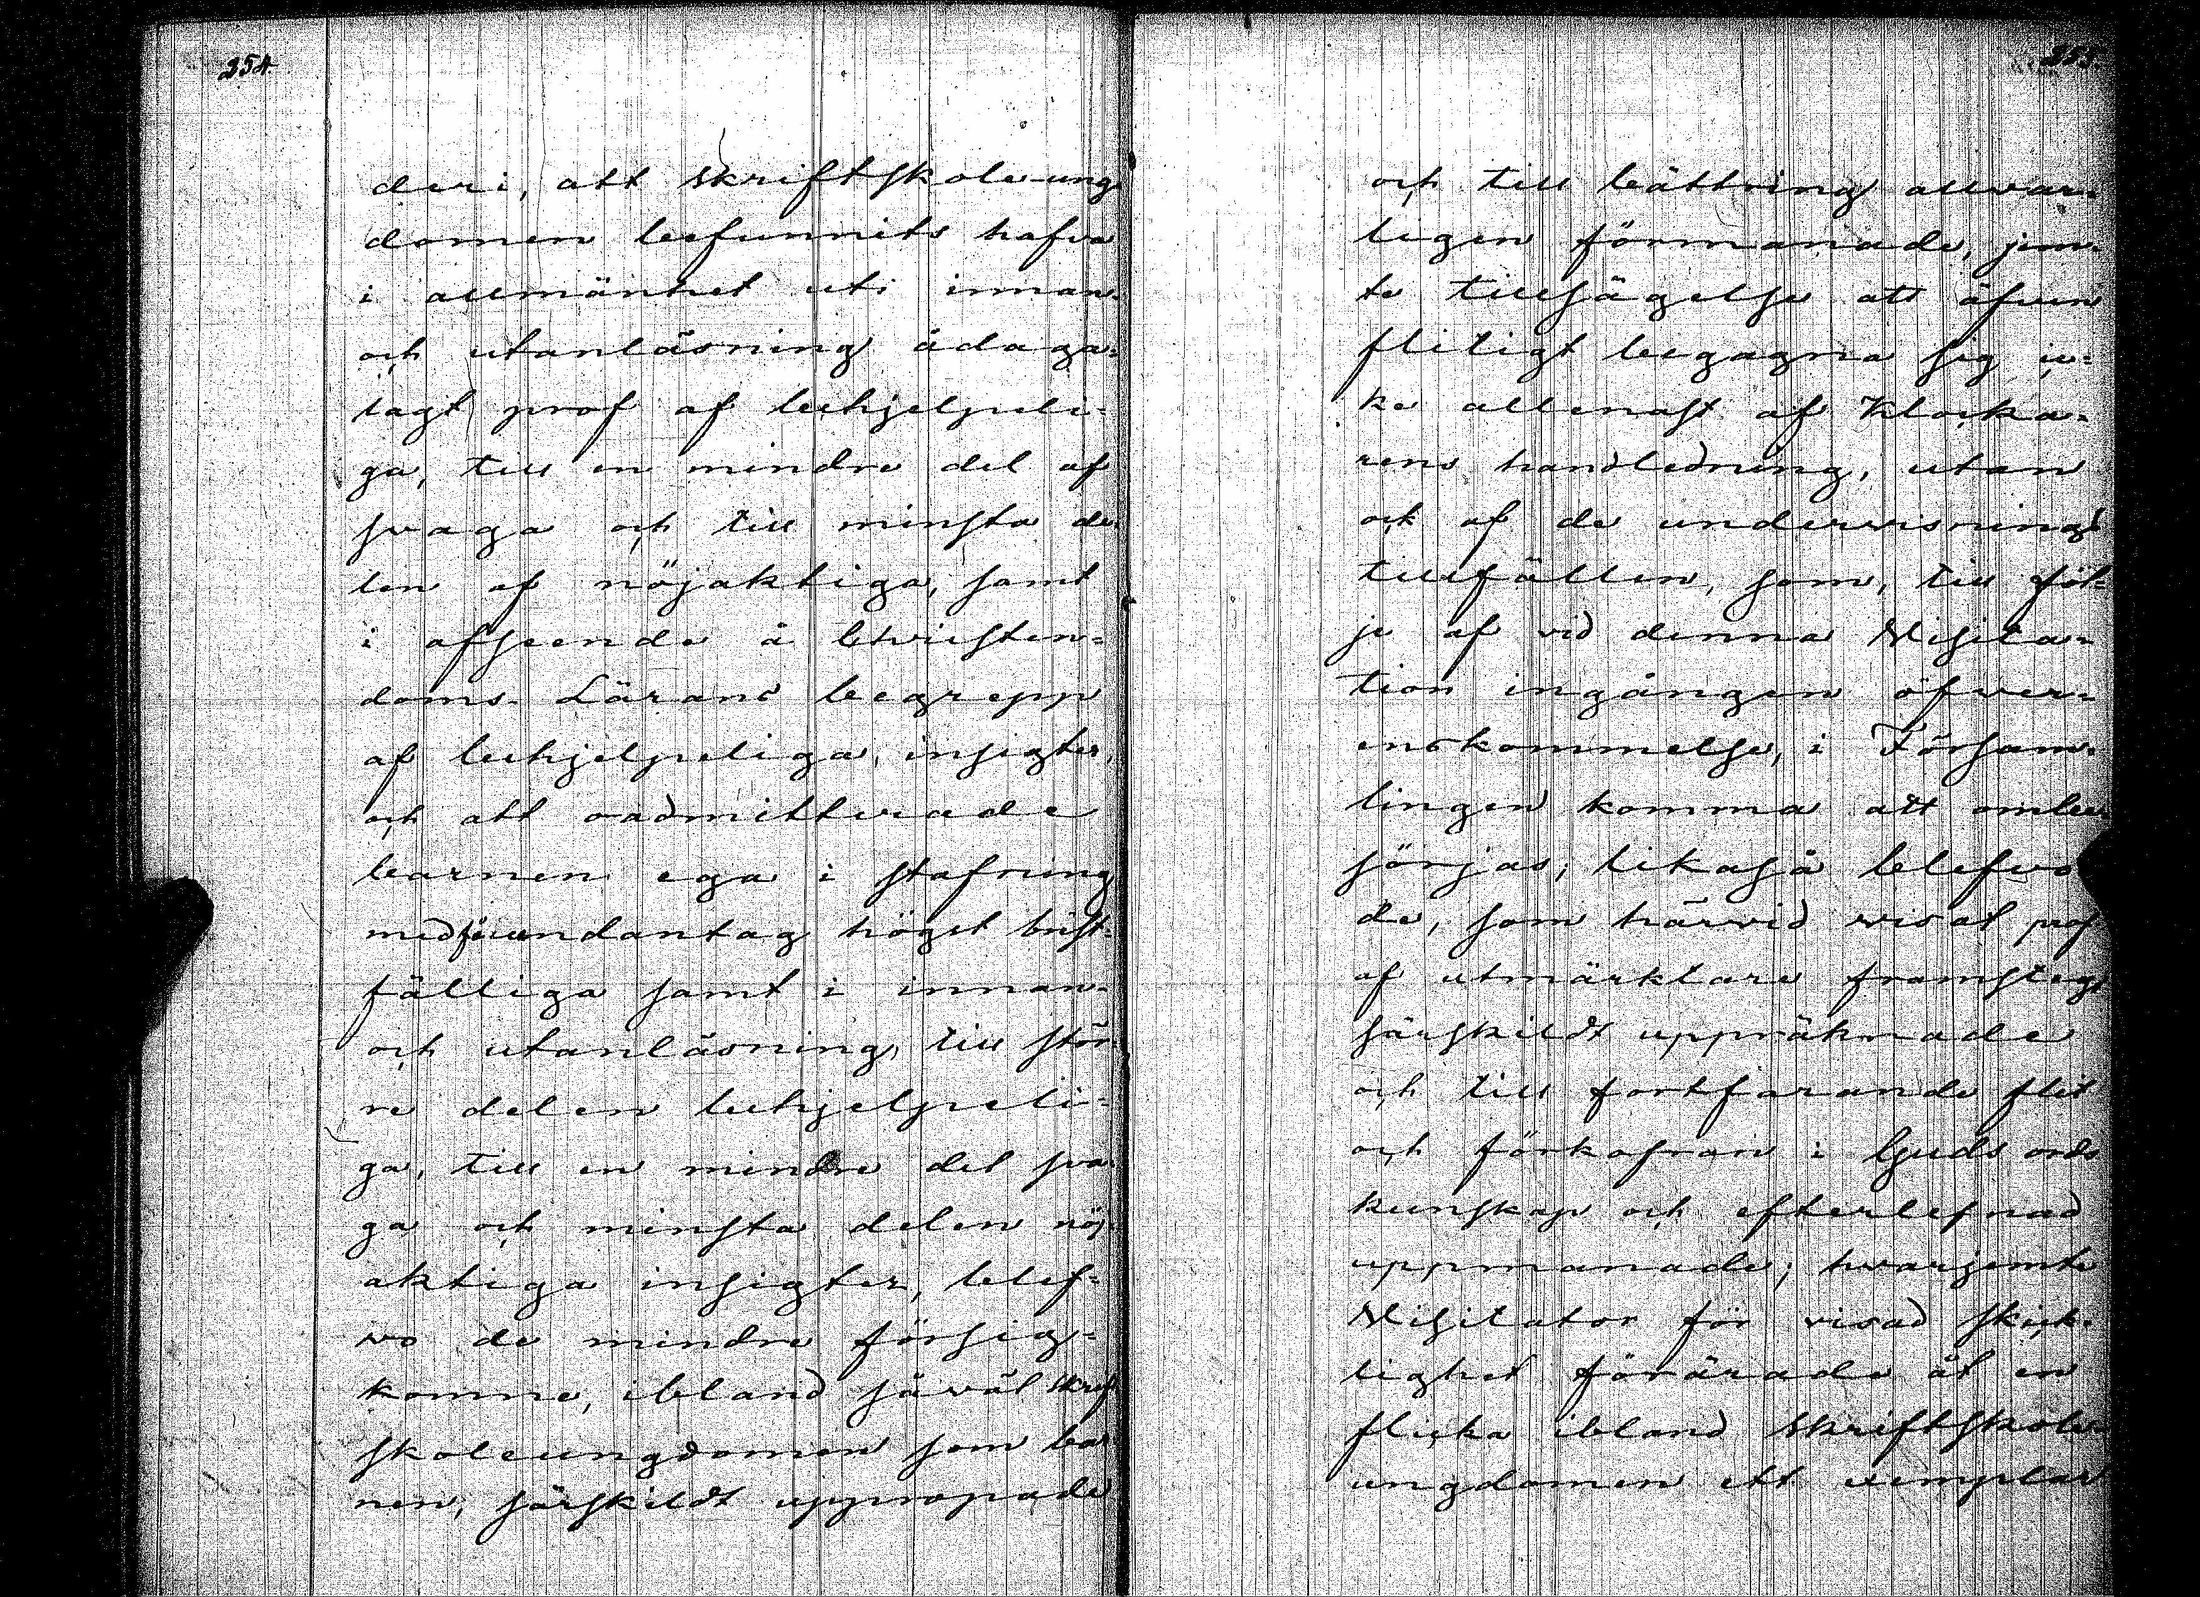 254.
deri, att skriftskole-ung
domen befunnits hafva
i allmänhet uti innan-
och utanläsning ådaga-
lagt prof af behjelpeli-
ga, till en mindre del af
svaga och till minsta de-
len af nöjaktiga, samt
i afseende å Christen-
doms Lärans begrepp
af behjelpeliga insigter,
och att oadmitterade
barnen ega i stafning
med undantag högst brist-
fälliga samt i innan-
och utanläsning, till stör-
re delen behjelpeli-
ga, till en mindre del sva-
ga och minsta delen nöj-
aktiga insigter, blef-
vo de mindre försig-
komne, ibland såväl skrift
skoleungdomen som bar
nen, särskildt uppropade
255.
och till bättring allvar-
ligen förmanade, jem-
te tillsägelse att äfven
flitigt begagna sig ic-
ke allenast af Klocka-
rens handledning, utan
ock af de undervisnings
tillfällen, som, till föl-
je af vid denna Visita-
tion ingången öfver-
enskommelse, i Försam-
lingen komma att ombe-
sörjas; likaså blefvo
de, som härvid visat prof
af utmärktare framsteg,
särskildt uppräknade
och till fortfarande flit
och förkofran i Guds ords
kunskap och efterlefnad
uppmanade; hvarjemte
Visitator för visad skick-
lighet förärade åt en
flicka ibland skriftskole-
ungdomen ett exemplar